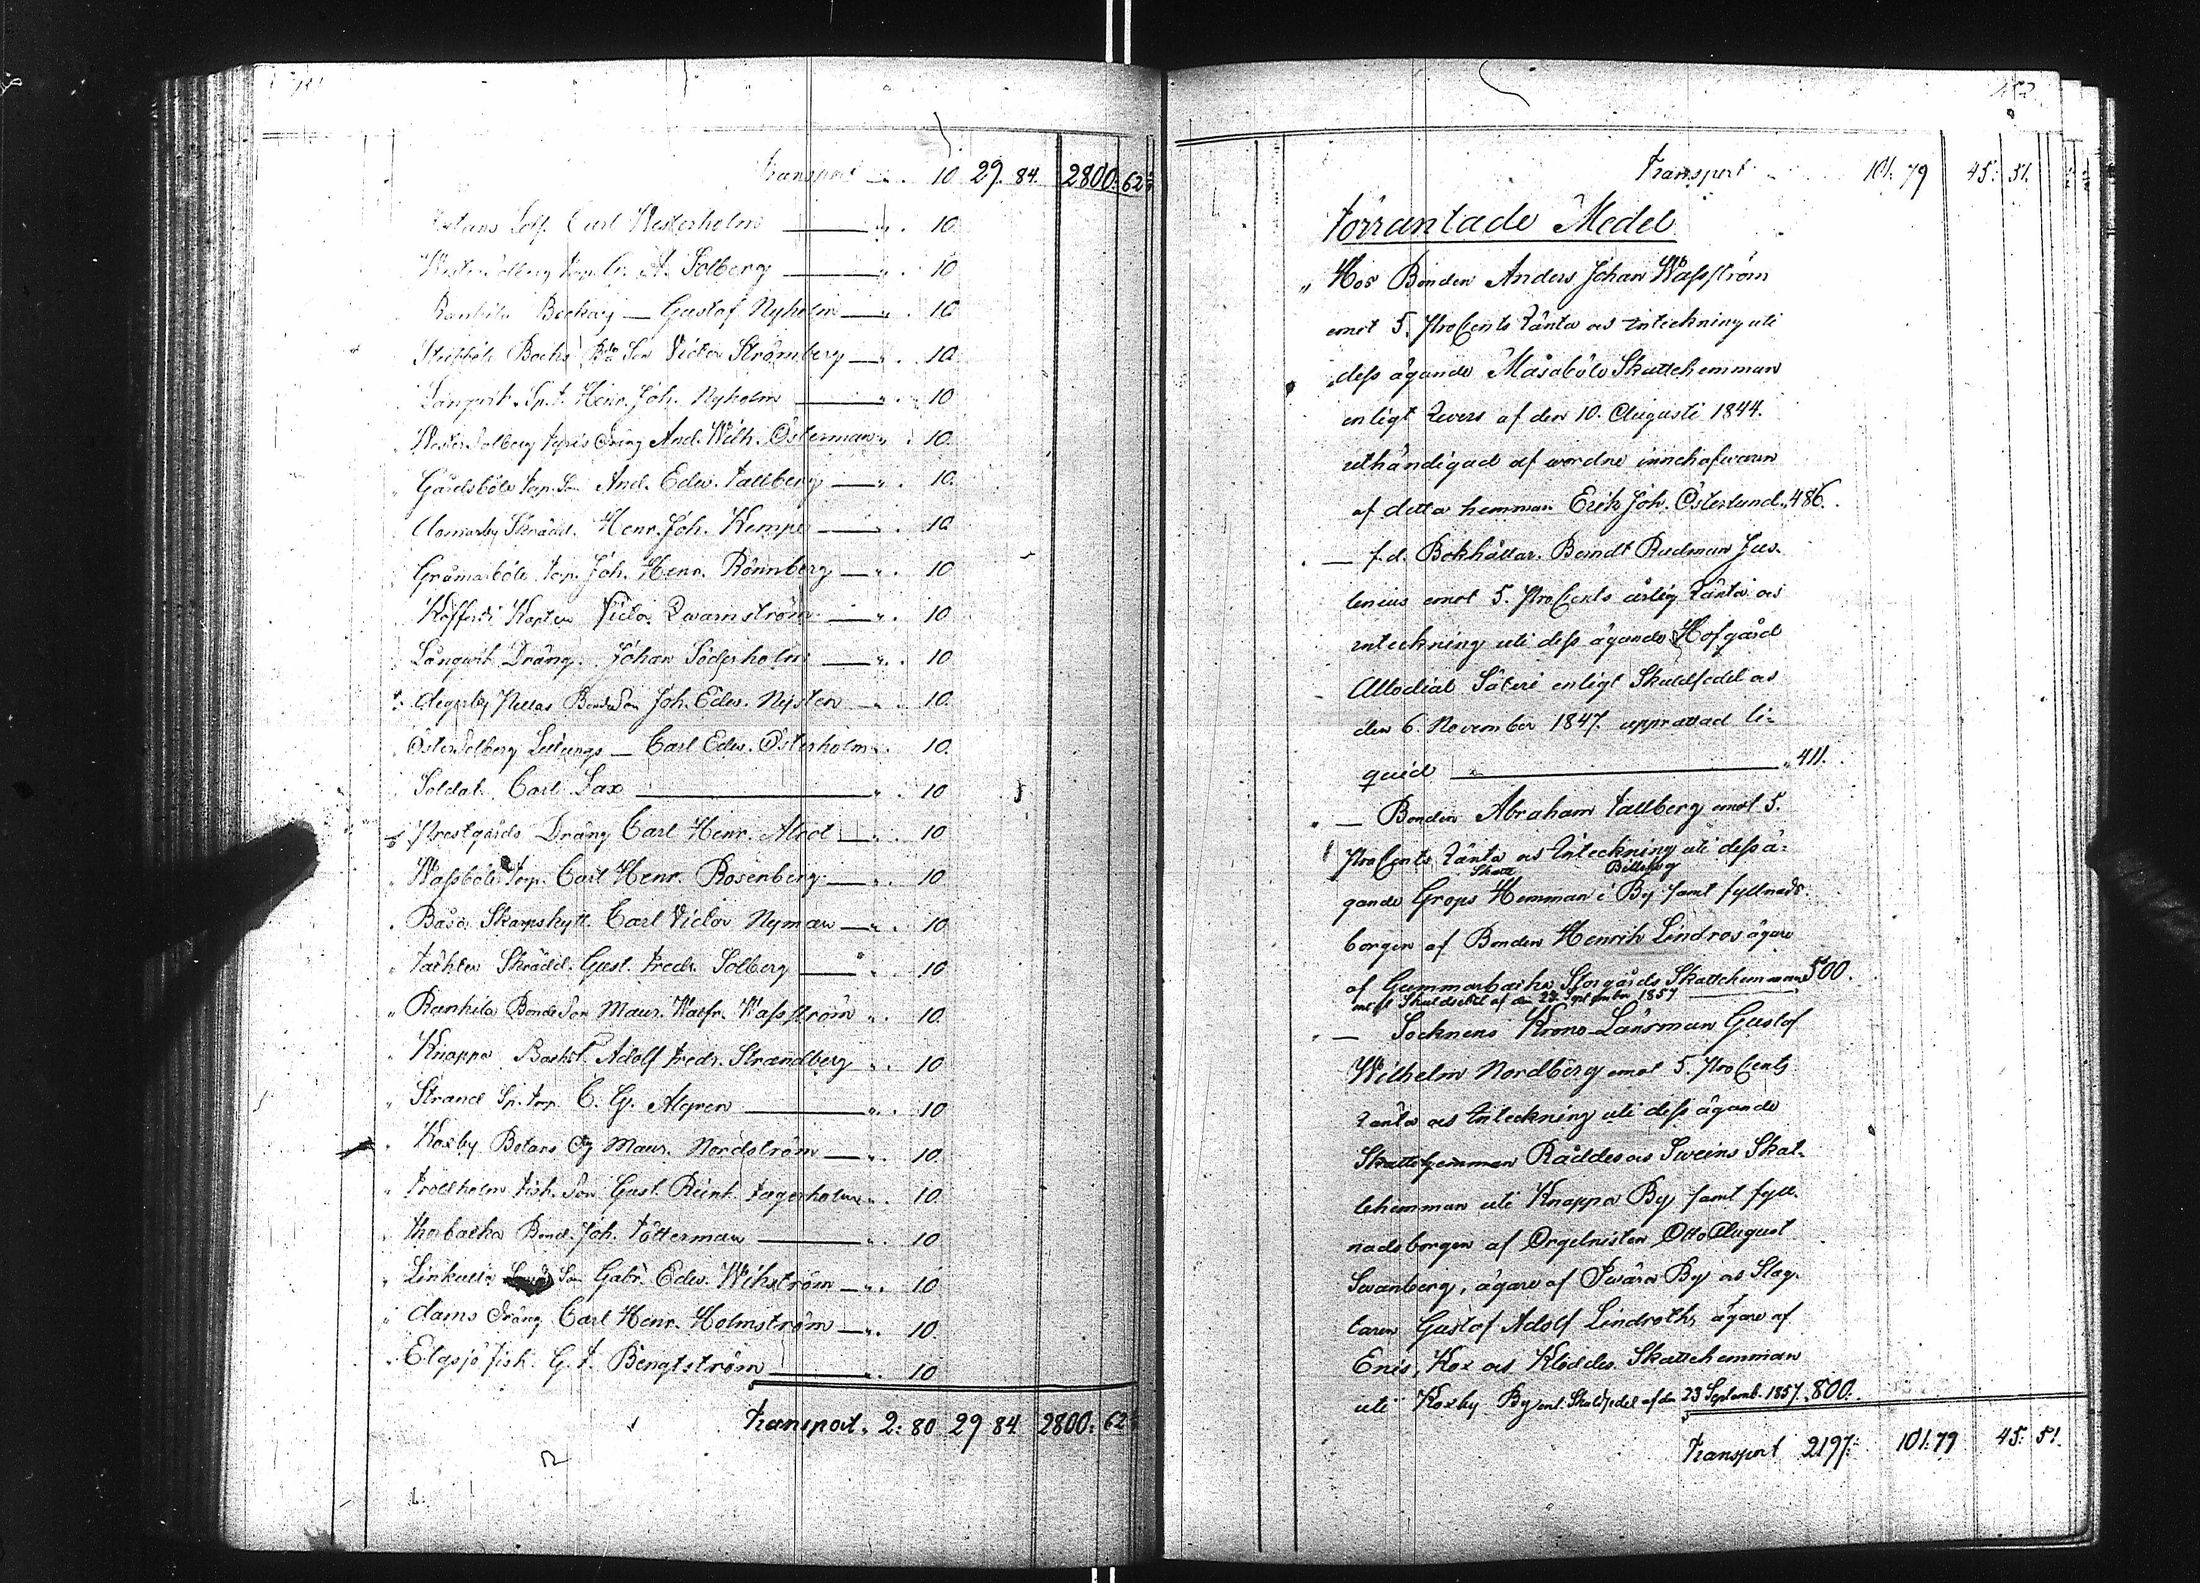 Transport „ . 10 29. 84. 2800: 62
Botans Carl Westerholm „ . 10
Wester Solberg Torp. G. A. Solberg „ . 10
Rankila Gustaf Nyholm „ . 10
Bochs Bde Son Victor Strömberg „ . 10
Långwik Sp.t. Henr. Joh. Nyholm „ . 10
Wester Solberg Dräng And. Wilh. Österman „ . 10.
„ Gårdsböle Torp. Son And. Edw. Tallberg „ . 10.
Skrädd. Henr. Joh. Kempe „ . 10
Gråmarböle Torp. Joh. Henr. Rönnberg „ . 10
Kofferdi Kapten Victor Qvarnström „ . 10
Långwik Dräng. Johan Söderholm „ . 10
Degerby Bonde Son Joh. Edw. Nysten „ . 10.
Öster Solberg Carl Edw. Österholm „ . 10.
Soldat Carl Lax „ . 10
Prestgårds Dräng Carl Henr. Alrot „ . 10
„ Wassböle Torp. Carl Henr. Rosenberg „ . 10
„ Båsa Skarpskytt. Carl Victor Nyman „ . 10
„ Täkter Skrädd. Gust. Fredr. Solberg „ . 10
„ Rankila Bonde Son Maur. Walfr. Wasström „ . 10
„ Knappa Backst. Adolf Fredr. Strandberg „ . 10
„ Strand Sp. torp. C. G. Algren „ . 10
„ Koxby Botans Dg Maur. Nordström „ . 10.
„ Trollholm Fisk. Son Gust. Reinh. Fagerholm „ . 10.
„ Thorbacka Bond. Joh. Tötterman „ . 10
„ Linkulla Son Gabr. Edw. Wikström „ . 10
„ dams Dräng Carl Henr. Holmström „ . 10.
„ Elgsjö Fisk. G. F. Bengtström „ . 10
Transport „ 2: 80 29 84. 2800: 62
Transport 101: 79 45: 51.
Förräntade Medel
„ Hos Bonden Anders Johan Wasström
emot 5. ProCents Ränta och Inteckning uti
dess ägande Måsaböle Skattehemman
enligt Revers af den 10. Augusti 1844.
uthändigad af wordne innehafwaren
af detta hemman Erik Joh. Österlund. „ 486.
„ — f. d. Bokhållar. Berndt Rudman Jus-
lenius emot 5. ProCents årlig Ränta och
inteckning uti dess ägande Hofgård
Allodial Säteri enligt Skuldsedel och
den 6. November 1847. upprättad li-
quid „ 411.
„ — Bonden Abraham Tallberg emot 5.
ProCents Ränta och Inteckning uti dess ä-
Skatte Billskog
gande Grops Hemman i By samt fyllnads-
borgen af Bonden Henrik Lindros ägare
af Gammarbacka Storgårds Skattehemman 500.
enligt Skuldsedel af den 23 September 1857
„ — Socknens Krono-Länsman Gustaf
Wilhelm Nordberg emot 5. ProCents
Ränta och Inteckning uti dess ägande
Skattehemman Råddes och Sweins Skat-
tehemman uti Knappa By samt fyll-
nadsborgen af Orgelnisten Otto August
Swanberg, ägare af Swars By och Slag-
taren Gustaf Adolf Lindroth, ägare af
Enis, Kox och Kloddes Skattehemman
uti Koxby By enl. Skuldsedel af den 23 Septemb. 1857. 800.
Transport 2197: 101: 79 45: 51.